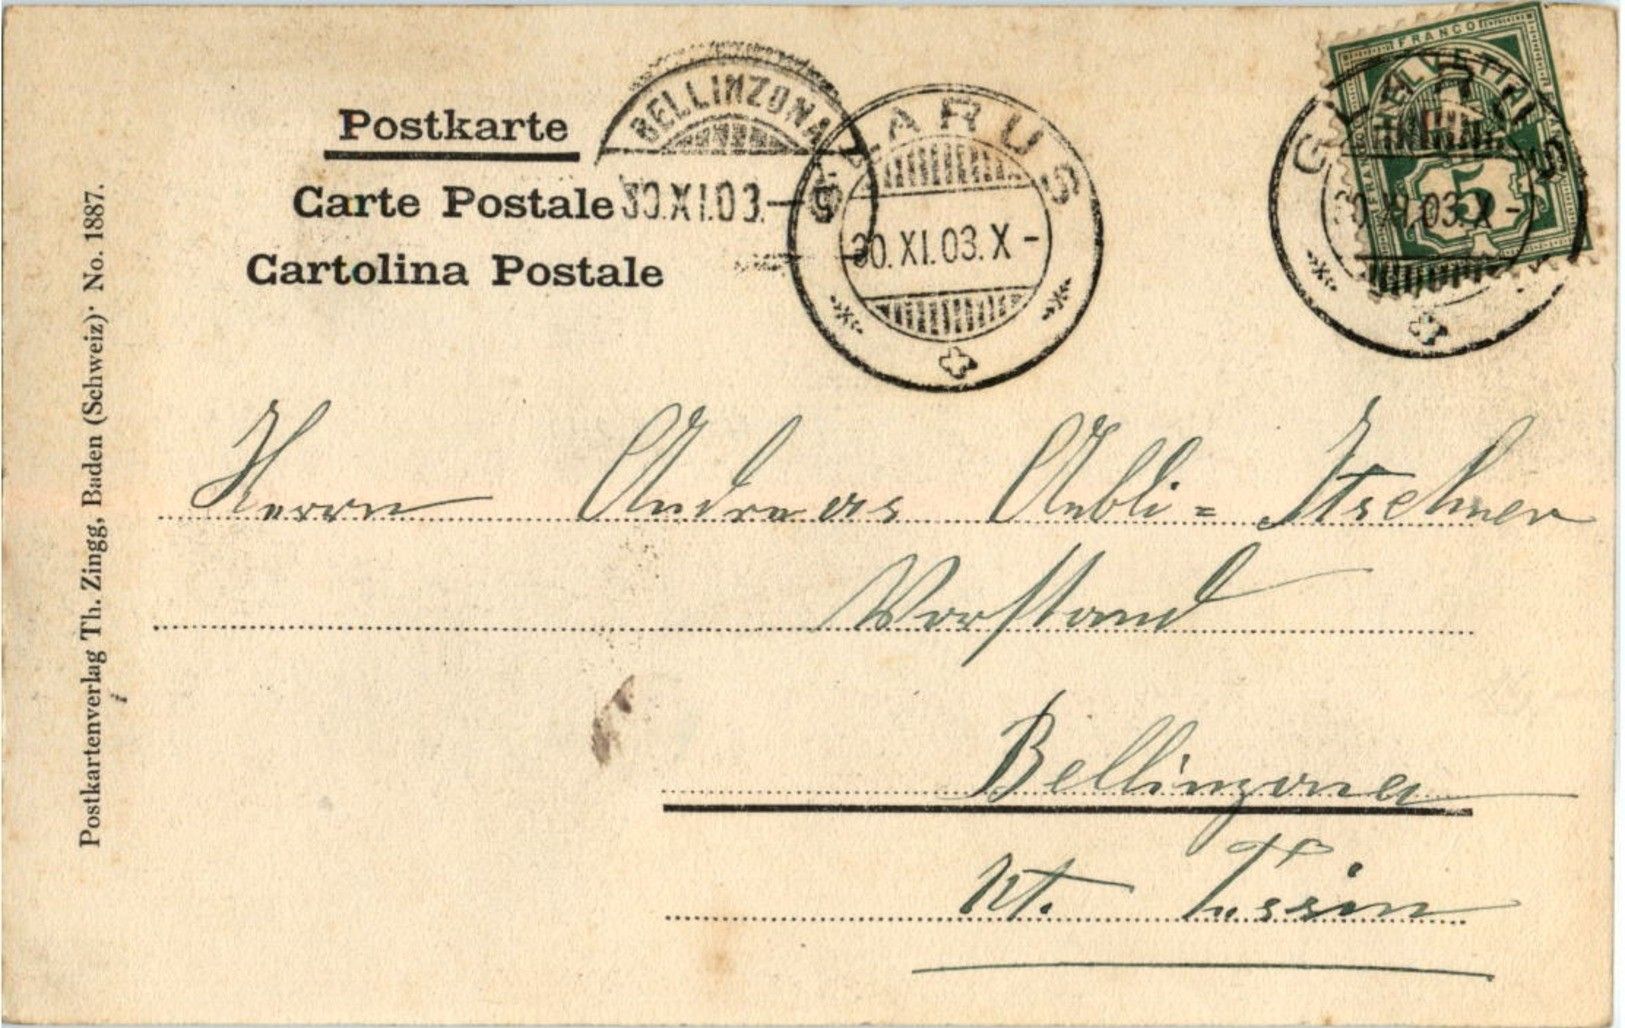 Postkarte
Carte Postale
Cartolina Postale
BELLINZONA
30.XI.03.—5
GLARUS
30.XI.03.X-
FRANCO
HELVETIA
5
GLARUS
30.XI.03.X-
Postkartenverlag Th. Zingg, Baden (Schweiz). No. 1887.
Herrn Andreas Aebli=Itschner
Vorstand
Bellinzona
Kt. Tessin